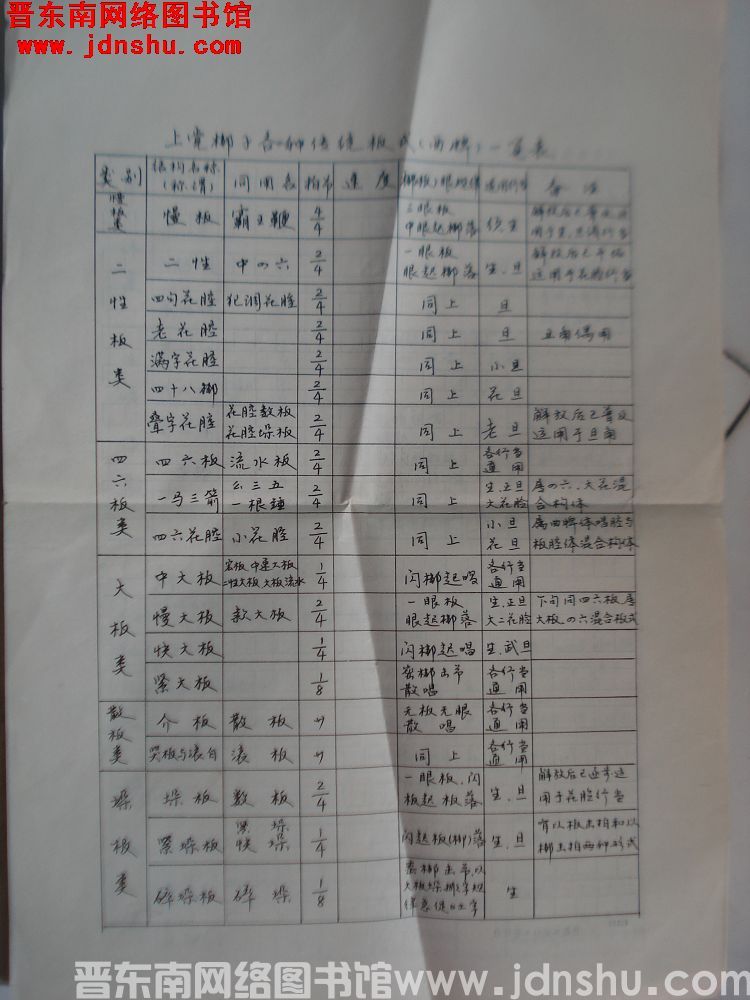 晋东南网络图书馆
www.jdnshu.com
上党梆子各种传统板式(曲牌)一览表
类别 结构名称(称谓) 同用名 拍节 速度 适用行当 备注
慢板 霸王鞭 4/4 三眼板 中眼起梆落 生
二性板类
二性 中の六 2/4 一眼板 眼起梆落 生.旦 适用于花脸行当
四句花腔 犯调花腔 2/4 同上 旦
老花腔 2/4 同上 旦 丑角偶用
满字花腔 2/4 同上 小旦
四十八梆 2/4 同上 花旦
叠字花腔 花腔数板 花腔垛板 2/4 同上 老旦 解放后已普及 适用于旦角
四六板类
四六板 流水板 2/4 同上 各行当通用
一马三箭 幺三五 一根 2/4 同上 生.正旦 大花脸 の六.大花混合构体
四六花腔 小花腔 2/4 同上 小旦 花旦 属曲牌体唱腔与板腔体混合构体
大板类
中大板 宏板 中速大板 二性大板 大板流水 1/4 闪梆起唱 各行当通用
慢大板 款大板 2/4 一眼板 眼起梆落 生.正旦 大二花脸 下句同四六板属大板.の六混合板式
快大板 1/4 闪梆起唱 生.武旦
紧大板 1/8 密梆击节 散唱 各行当通用
散板类
介板 散板 サ 无板无眼 散唱 各行当通用
哭板与滚白 滚板 サ 同上 各行当通用
垛板类
垛板 数板 2/4 一眼板.闪板起板落 生.旦 解放后已逐步适用于花脸行当
紧垛板 紧垛 快垛 1/4 闪起板(梆)落 生.旦 有以板击拍和以梆击拍两种形式
碎垛板 碎垛 1/8 生
晋东南网络图书馆 www.jdnshu.com